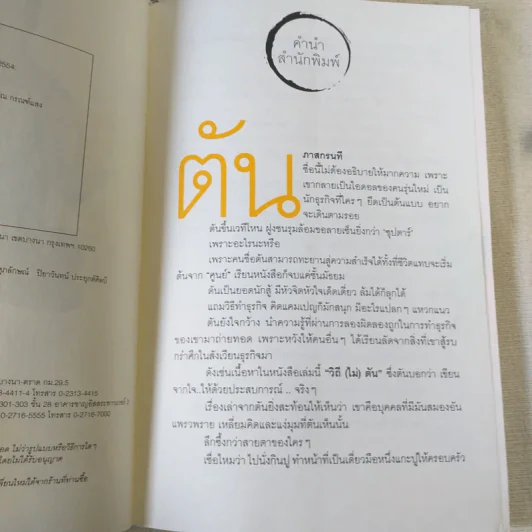 2504
คำนำ
สำนักพิมพ์
ตัน
ภาสกรนที
ชื่อนี้ไม่ต้องอธิบายให้มากความ เพราะ
เขากลายเป็นไอดอลของคนรุ่นใหม่ เป็น
นักธุรกิจที่ใครๆ ยึดเป็นต้นแบบ อยาก
จะเดินตามรอย
ตันขึ้นเวทีไหน ฝูงชนรุมล้อมขอลายเซ็นยิ่งกว่า 'ซุปตาร์'
เพราะอะไรนะหรือ
เพราะคนชื่อตันสามารถทะยานสู่ความสำเร็จได้ทั้งที่ชีวิตแทบจะเริ่ม
ต้นจาก "ศูนย์" เรียนหนังสือก็จบแค่ชั้นมัธยม
ตันเป็นยอดนักสู้ มีหัวจิตหัวใจเด็ดเดี่ยว ล้มได้ก็ลุกได้
แถมวิธีทำธุรกิจ คิดแคมเปญก็มักสนุก มีอะไรแปลกๆ แหวกแนว
ตันยังใจกว้าง นำความรู้ที่ผ่านการลองผิดลองถูกในการทำธุรกิจ
ของเขามาถ่ายทอด เพราะหวังให้คนอื่นๆ ได้เรียนลัดจากสิ่งที่เขาสู้รบ
กรำศึกในสังเวียนธุรกิจมา
ดังเช่นเนื้อหาในหนังสือเล่มนี้ "วิถี (ไม่) ตัน" ซึ่งตันบอกว่า เขียน
จากใจ..ให้ด้วยประสบการณ์ .. จริงๆ
เรื่องเล่าจากตันยิ่งสะท้อนให้เห็นว่า เขาคือบุคคลที่มีมันสมองอัน
แพรวพราย เหลี่ยมคิดและแง่มุมที่ตันเห็นนั้น
ลึกซึ้งกว่าสายตาของใครๆ
เชื่อไหมว่า ไปนั่งกินปู ทำหน้าที่เป็นเดี่ยวมือหนึ่งแกะปูให้ครอบครัว
เขตบางนา กรุงเทพฯ 10260
ปิยาวันทน์ ประยุกต์ศิลป์
บางนา-ตราด กม.29.5
8-4411-4 โทรสาร 0-2313-4415
301-303 ชั้น 28
0-2716-5555 โทรสาร 0-2716-7000
ไม่ว่ารูปแบบหรือวิธีการใดๆ
โดยไม่ได้รับอนุญาต
เปลี่ยนใหม่ได้จากร้านที่ท่านซื้อ